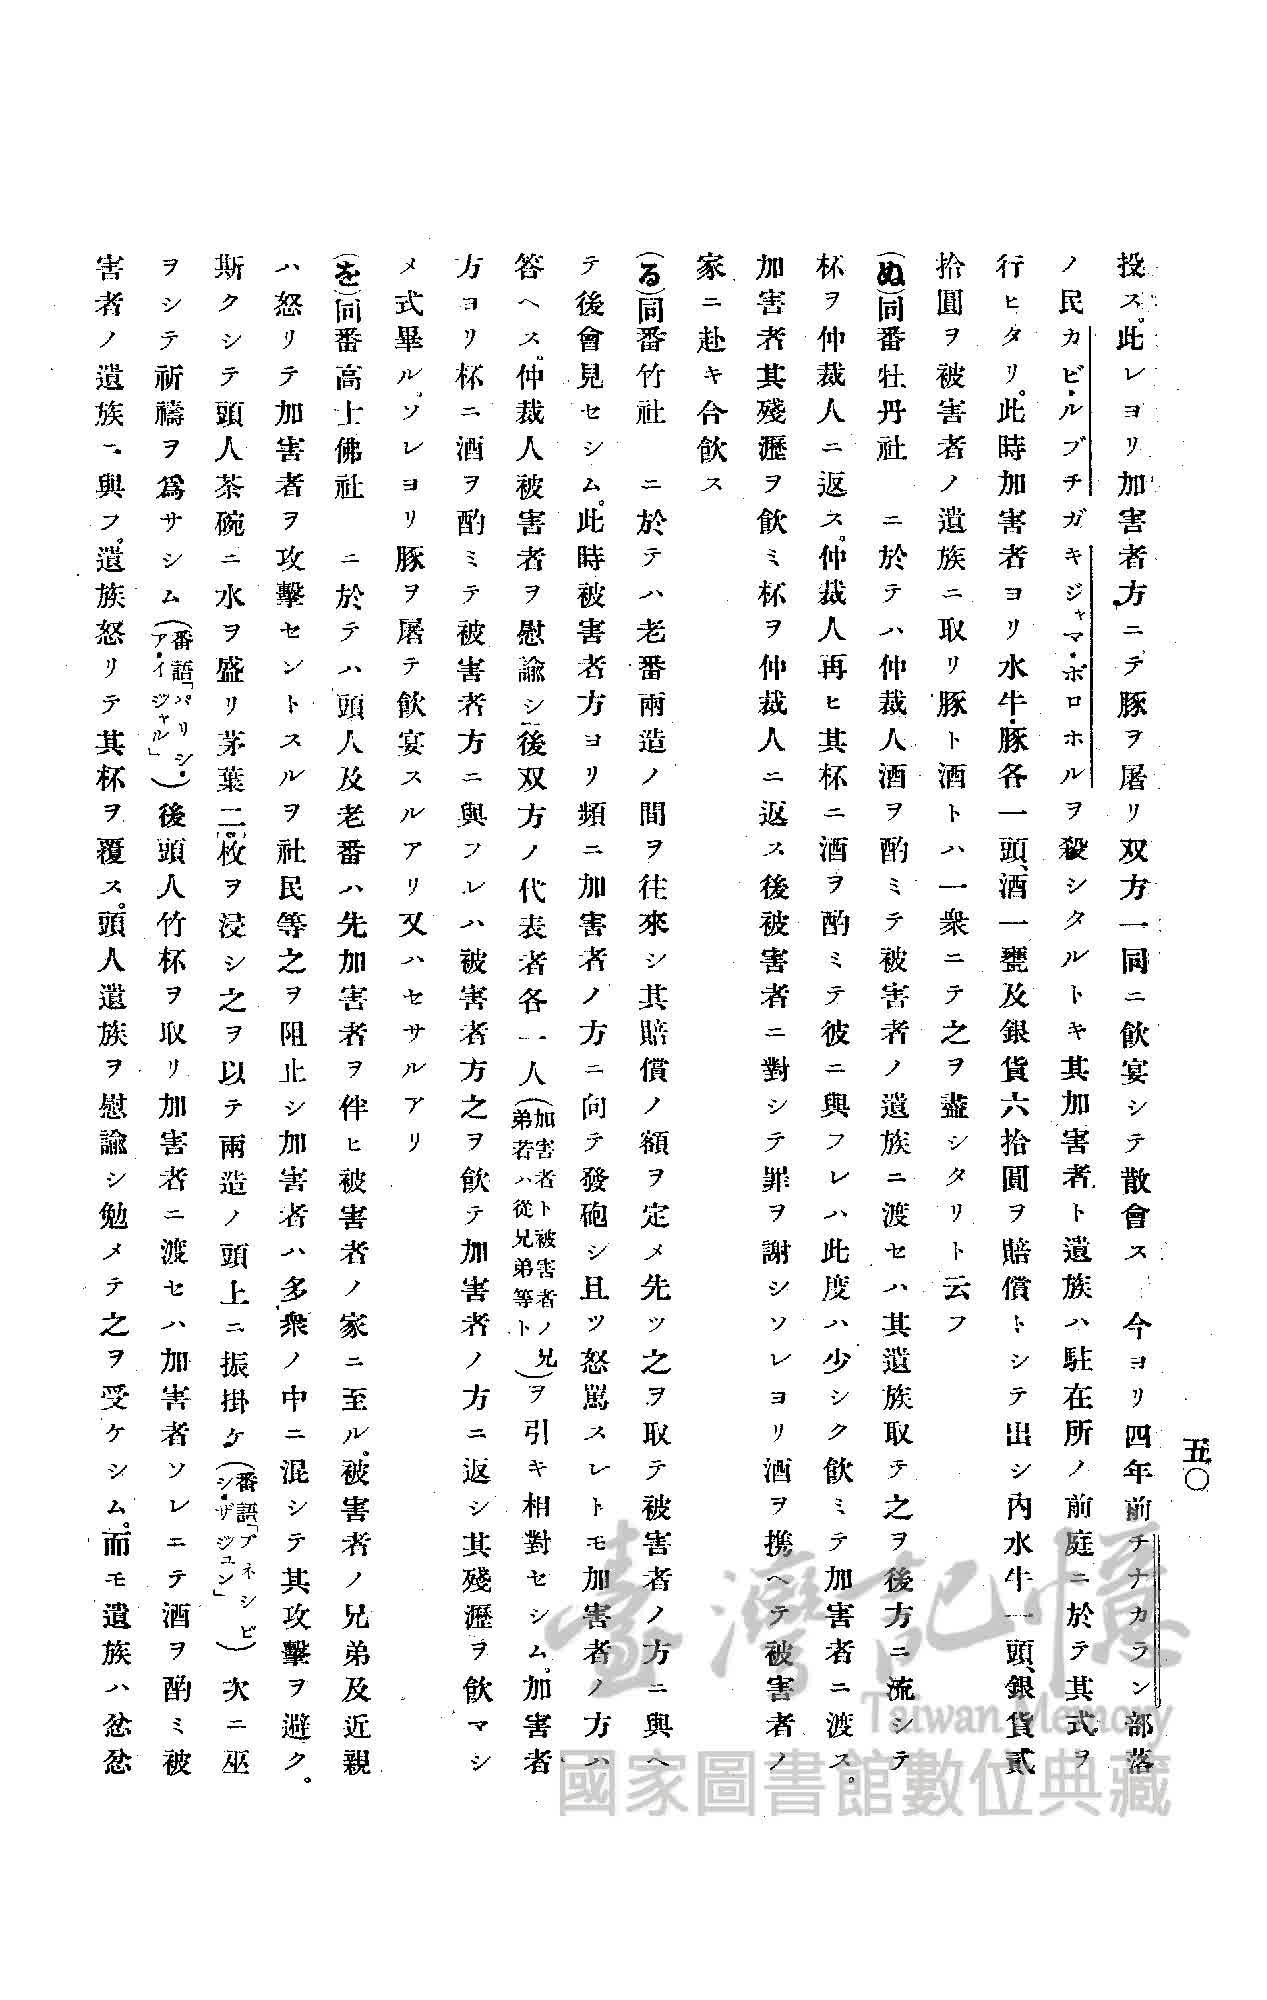 五〇
投ス。此レヨリ加害者方ニテ豚ヲ屠リ双方一同ニ飮宴シテ散會ス 今ヨリ四年前チナカラン部落
ノ民カビ・ルブチガキジャマ・ボロホルヲ殺シタルトキ其加害者ト遺族ハ駐在所ノ前庭ニ於テ其式ヲ
行ヒタリ。此時加害者ヨリ水牛・豚各一頭、酒一甕及銀貨六拾圓ヲ賠償トシテ出シ內水牛一頭、銀貨貳
拾圓ヲ被害者ノ遺族ニ取リ豚ト酒トハ一衆ニテ之ヲ盡シタリト云フ
(ぬ)同番牡丹社 ニ於テハ仲裁人酒ヲ酌ミテ被害者ノ遺族ニ渡セハ其遺族取テ之ヲ後方ニ流シテ
杯ヲ仲裁人ニ返ス。仲裁人再ヒ其杯ニ酒ヲ酌ミテ彼ニ與フレハ此度ハ少シク飮ミテ加害者ニ渡ス。
加害者其殘瀝ヲ飮ミ杯ヲ仲裁人ニ返ス後被害者ニ對シテ罪ヲ謝シソレヨリ酒ヲ携ヘテ被害者ノ
家ニ赴キ合飮ス
(る)同番竹社 ニ於テハ老番兩造ノ間ヲ往來シ其賠償ノ額ヲ定メ先ツ之ヲ取テ被害者ノ方ニ與ヘ
テ後會見セシム。此時被害者方ヨリ頻ニ加害者ノ方ニ向テ發砲シ且ツ怒罵スレトモ加害者ノ方ハ
答ヘス。仲裁人被害者ヲ慰諭シ後双方ノ代表者各一人(加害者ト被害者ノ兄弟若ハ從兄弟等ト)ヲ引キ相對セシム。加害者
方ヨリ杯ニ酒ヲ酌ミテ被害者方ニ與フレハ被害者方之ヲ飮テ加害者ノ方ニ返シ其殘瀝ヲ飮マシ
メ式畢ル。ソレヨリ豚ヲ屠テ飮宴スルアリ又ハセサルアリ
(を)同番高士佛社 ニ於テハ頭人及老番ハ先加害者ヲ伴ヒ被害者ノ家ニ至ル。被害者ノ兄弟及近親
ハ怒リテ加害者ヲ攻擊セントスルヲ社民等之ヲ阻止シ加害者ハ多衆ノ中ニ混シテ其攻擊ヲ避ク。
斯クシテ頭人茶碗ニ水ヲ盛リ茅葉二枚ヲ浸シ之ヲ以テ兩造ノ頭上ニ振掛ケ(番語「プネシビシ・ザジュン」)次ニ巫
ヲシテ祈禱ヲ爲サシム(番語「パリシ・ア・イジャル」)後頭人竹杯ヲ取リ加害者ニ渡セハ加害者ソレニテ酒ヲ酌ミ被
害者ノ遺族ニ與フ。遺族怒リテ其杯ヲ覆ス。頭人遺族ヲ慰諭シ勉メテ之ヲ受ケシム。而モ遺族ハ忿忿
臺灣記憶
Taiwan Memory
國家圖書館數位典藏